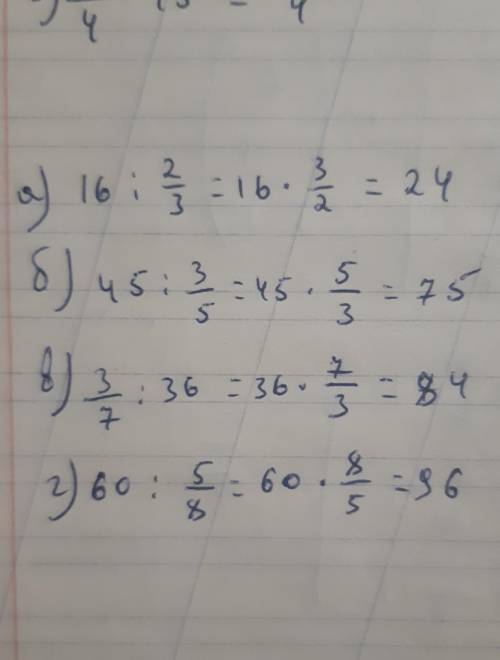 а) 16 : 2/3 = 16 · 3/2 = 24
б) 45 : 3/5 = 45 · 5/3 = 75
в) 3/7 : 36 = 36 · 7/3 = 84
г) 60 : 5/8 = 60 · 8/5 = 96